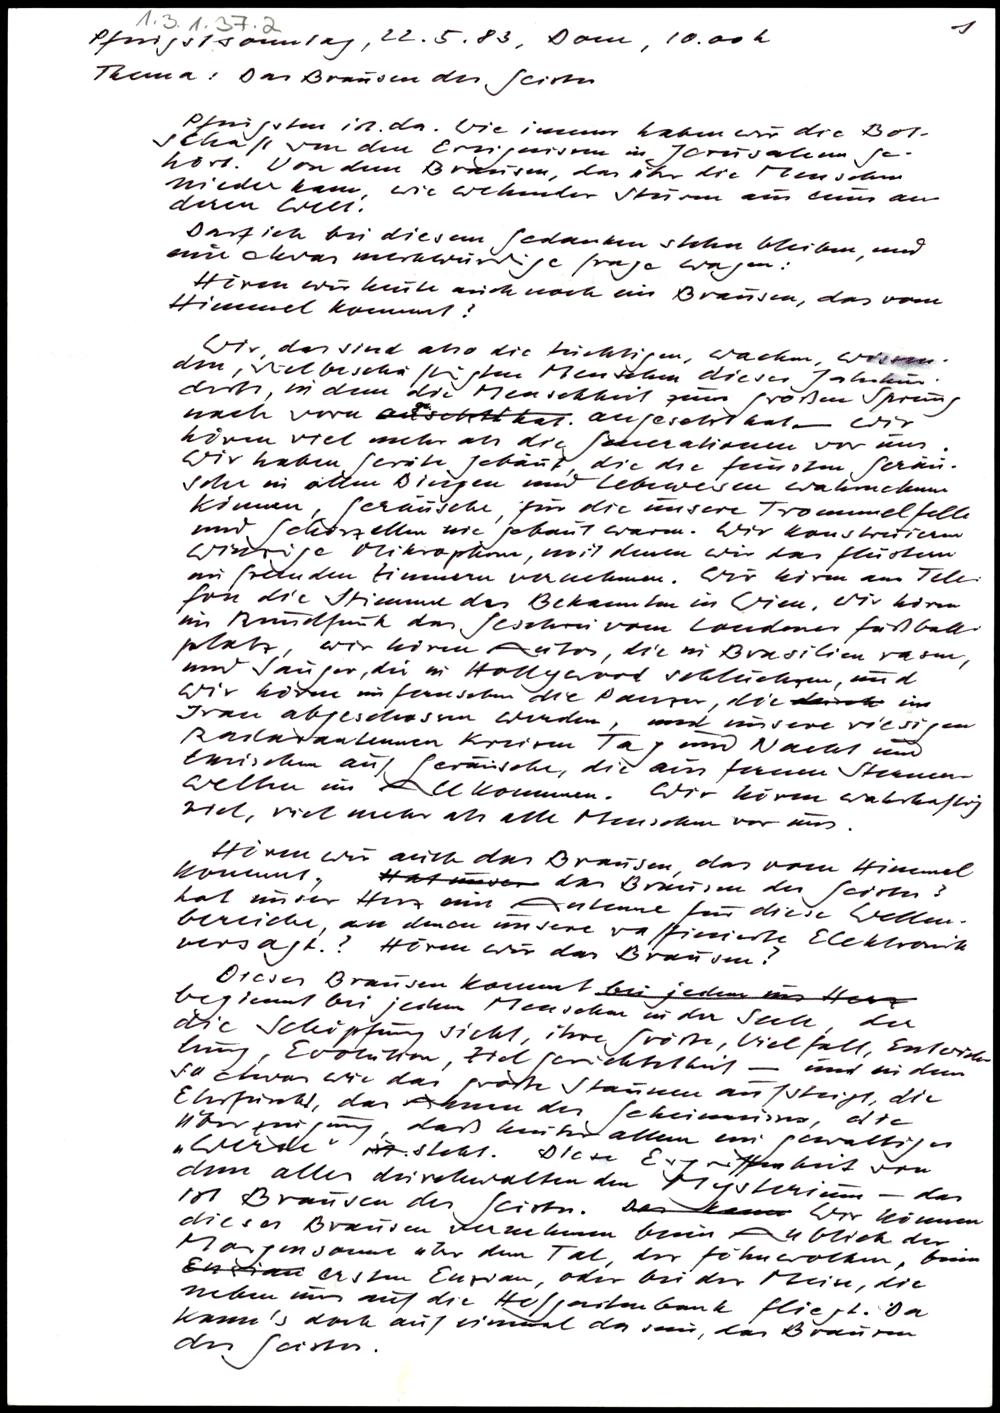 1.3.1.37.2
1
Pfingstsonntag, 22.5.83, Dom, 10.00 h
Thema: Das Brausen des Geistes
Pfingsten ist da. Wie immer haben wir die Bot-
schaft von den Ereignissen in Jerusalem ge-
hört. Von dem Brausen, das über die Menschen
niederkam, wie wehender Sturm aus einer an-
deren Welt.
Darf ich bei diesem Gedanken stehn bleiben, und
eine etwas merkwürdige Frage wagen:
Hören wir heute auch noch ein Brausen, das vom
Himmel kommt?
Wir, das sind also die tüchtigen, wachen, wissen-
den, vielbeschäftigten Menschen dieses Jahrhun-
derts, in dem die Menschheit zum großen Sprung
nach vorn angesetzt hat – Wir
hören viel mehr als die Generationen vor uns.
Wir haben Geräte gebaut, die die feinsten Geräu-
sche in allen Dingen und Lebewesen wahrnehmen
können, Geräusche, für die unsere Trommelfelle
und Gehörzellen nie gebaut waren. Wir konstruieren
winzige Mikrophone, mit denen wir das Flüstern
in fremden Zimmern vernehmen. Wir hören am Tele-
fon die Stimme des Bekannten in Wien, wir hören
im Rundfunk das Geschrei vom Londoner Fußball-
platz, wir hören Autos, die in Brasilien rasen,
und Sänger, die in Hollywood schluchzen, und
wir hören im Fernsehen die Panzer, die im
Iran abgeschossen werden, und unsere riesigen
Radarantennen kreisen Tag und Nacht und
lauschen auf Geräusche, die aus fernen Sternen-
welten im All kommen. Wir hören wahrhaftig
viel, viel mehr als alle Menschen vor uns.
Hören wir auch das Brausen, das vom Himmel
kommt, das Brausen des Geistes?
hat unser Herz eine Antenne für diese Wellen-
bereiche, an denen unsere raffinierte Elektronik
versagt.? Hören wir das Brausen?
Dieses Brausen kommt bei jedem ins Herz
beginnt bei jedem Menschen in der Seele, der
die Schöpfung sieht, ihre Größe, Vielfalt, Entwick-
lung, Evolution, Zielgerichtetheit – und in dem
so etwas wie das große Staunen aufsteigt, die
Ehrfurcht, das Ahnen des Geheimnisses, die
Überzeugung, daß hinter allem ein gewaltiges
„Werde" steht. Diese Ergriffenheit von
dem alles durchwaltenden Mysterium – das
ist Brausen des Geistes. Wir können
dieses Brausen vernehmen beim Anblick der
Morgensonne über dem Tal, der Föhnwolken, beim
Enzian ersten Enzian, oder bei der Meise, die
neben uns auf die Hofgartenbank fliegt. Da
kann's doch auf einmal da sein, das Brausen
des Geistes.